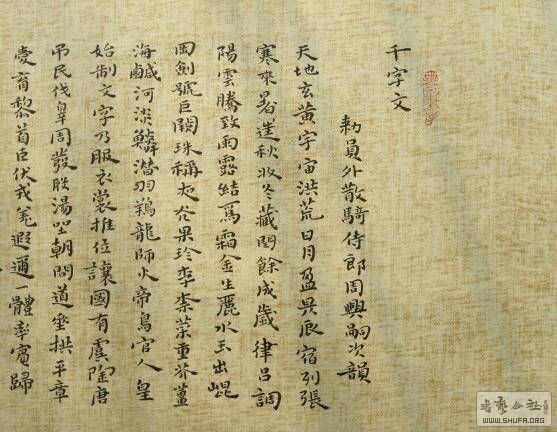 千字文
勑員外散騎侍郎周興嗣次韻
天地玄黃宇宙洪荒日月盈昃辰宿列張
寒來暑往秋收冬藏閏餘成歲律呂調
陽雲騰致雨露結爲霜金生麗水玉出崐
岡劍號巨闕珠稱夜光果珍李柰菜重芥薑
海鹹河淡鱗潛羽翔龍師火帝鳥官人皇
始制文字乃服衣裳推位讓國有虞陶唐
吊民伐辠周發殷湯坐朝問道垂拱平章
愛育黎首臣伏戎羌遐邇一體率賓歸
WWW.SHUFA.ORG